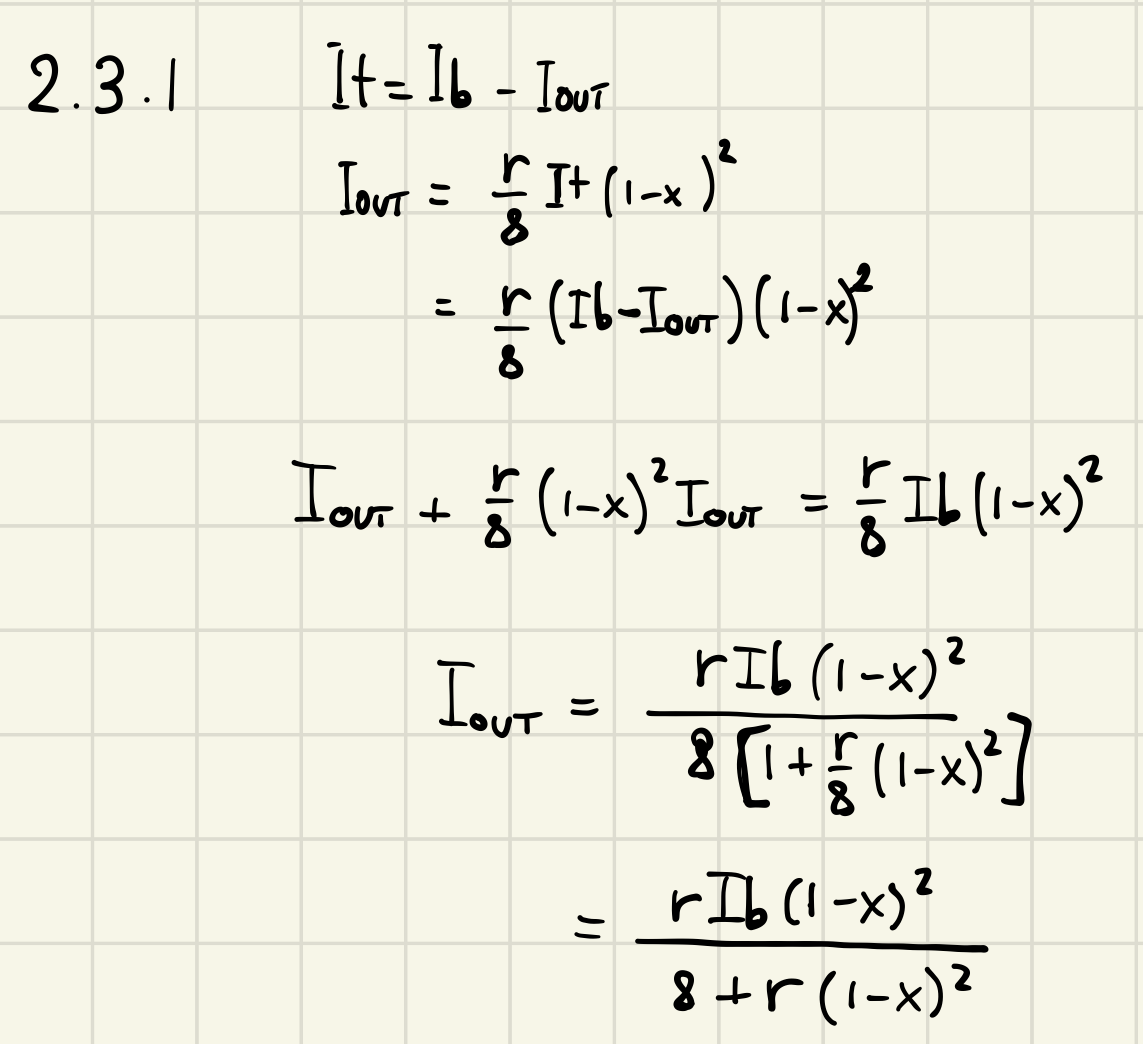 2.3.1 It = Ib - IOUT
IOUT = r/8 It (1-x)²
= r/8 (Ib-IOUT)(1-x)²
IOUT + r/8 (1-x)² IOUT = r/8 Ib (1-x)²
IOUT = rIb (1-x)² / 8[1 + r/8 (1-x)²]
= rIb (1-x)² / 8 + r (1-x)²